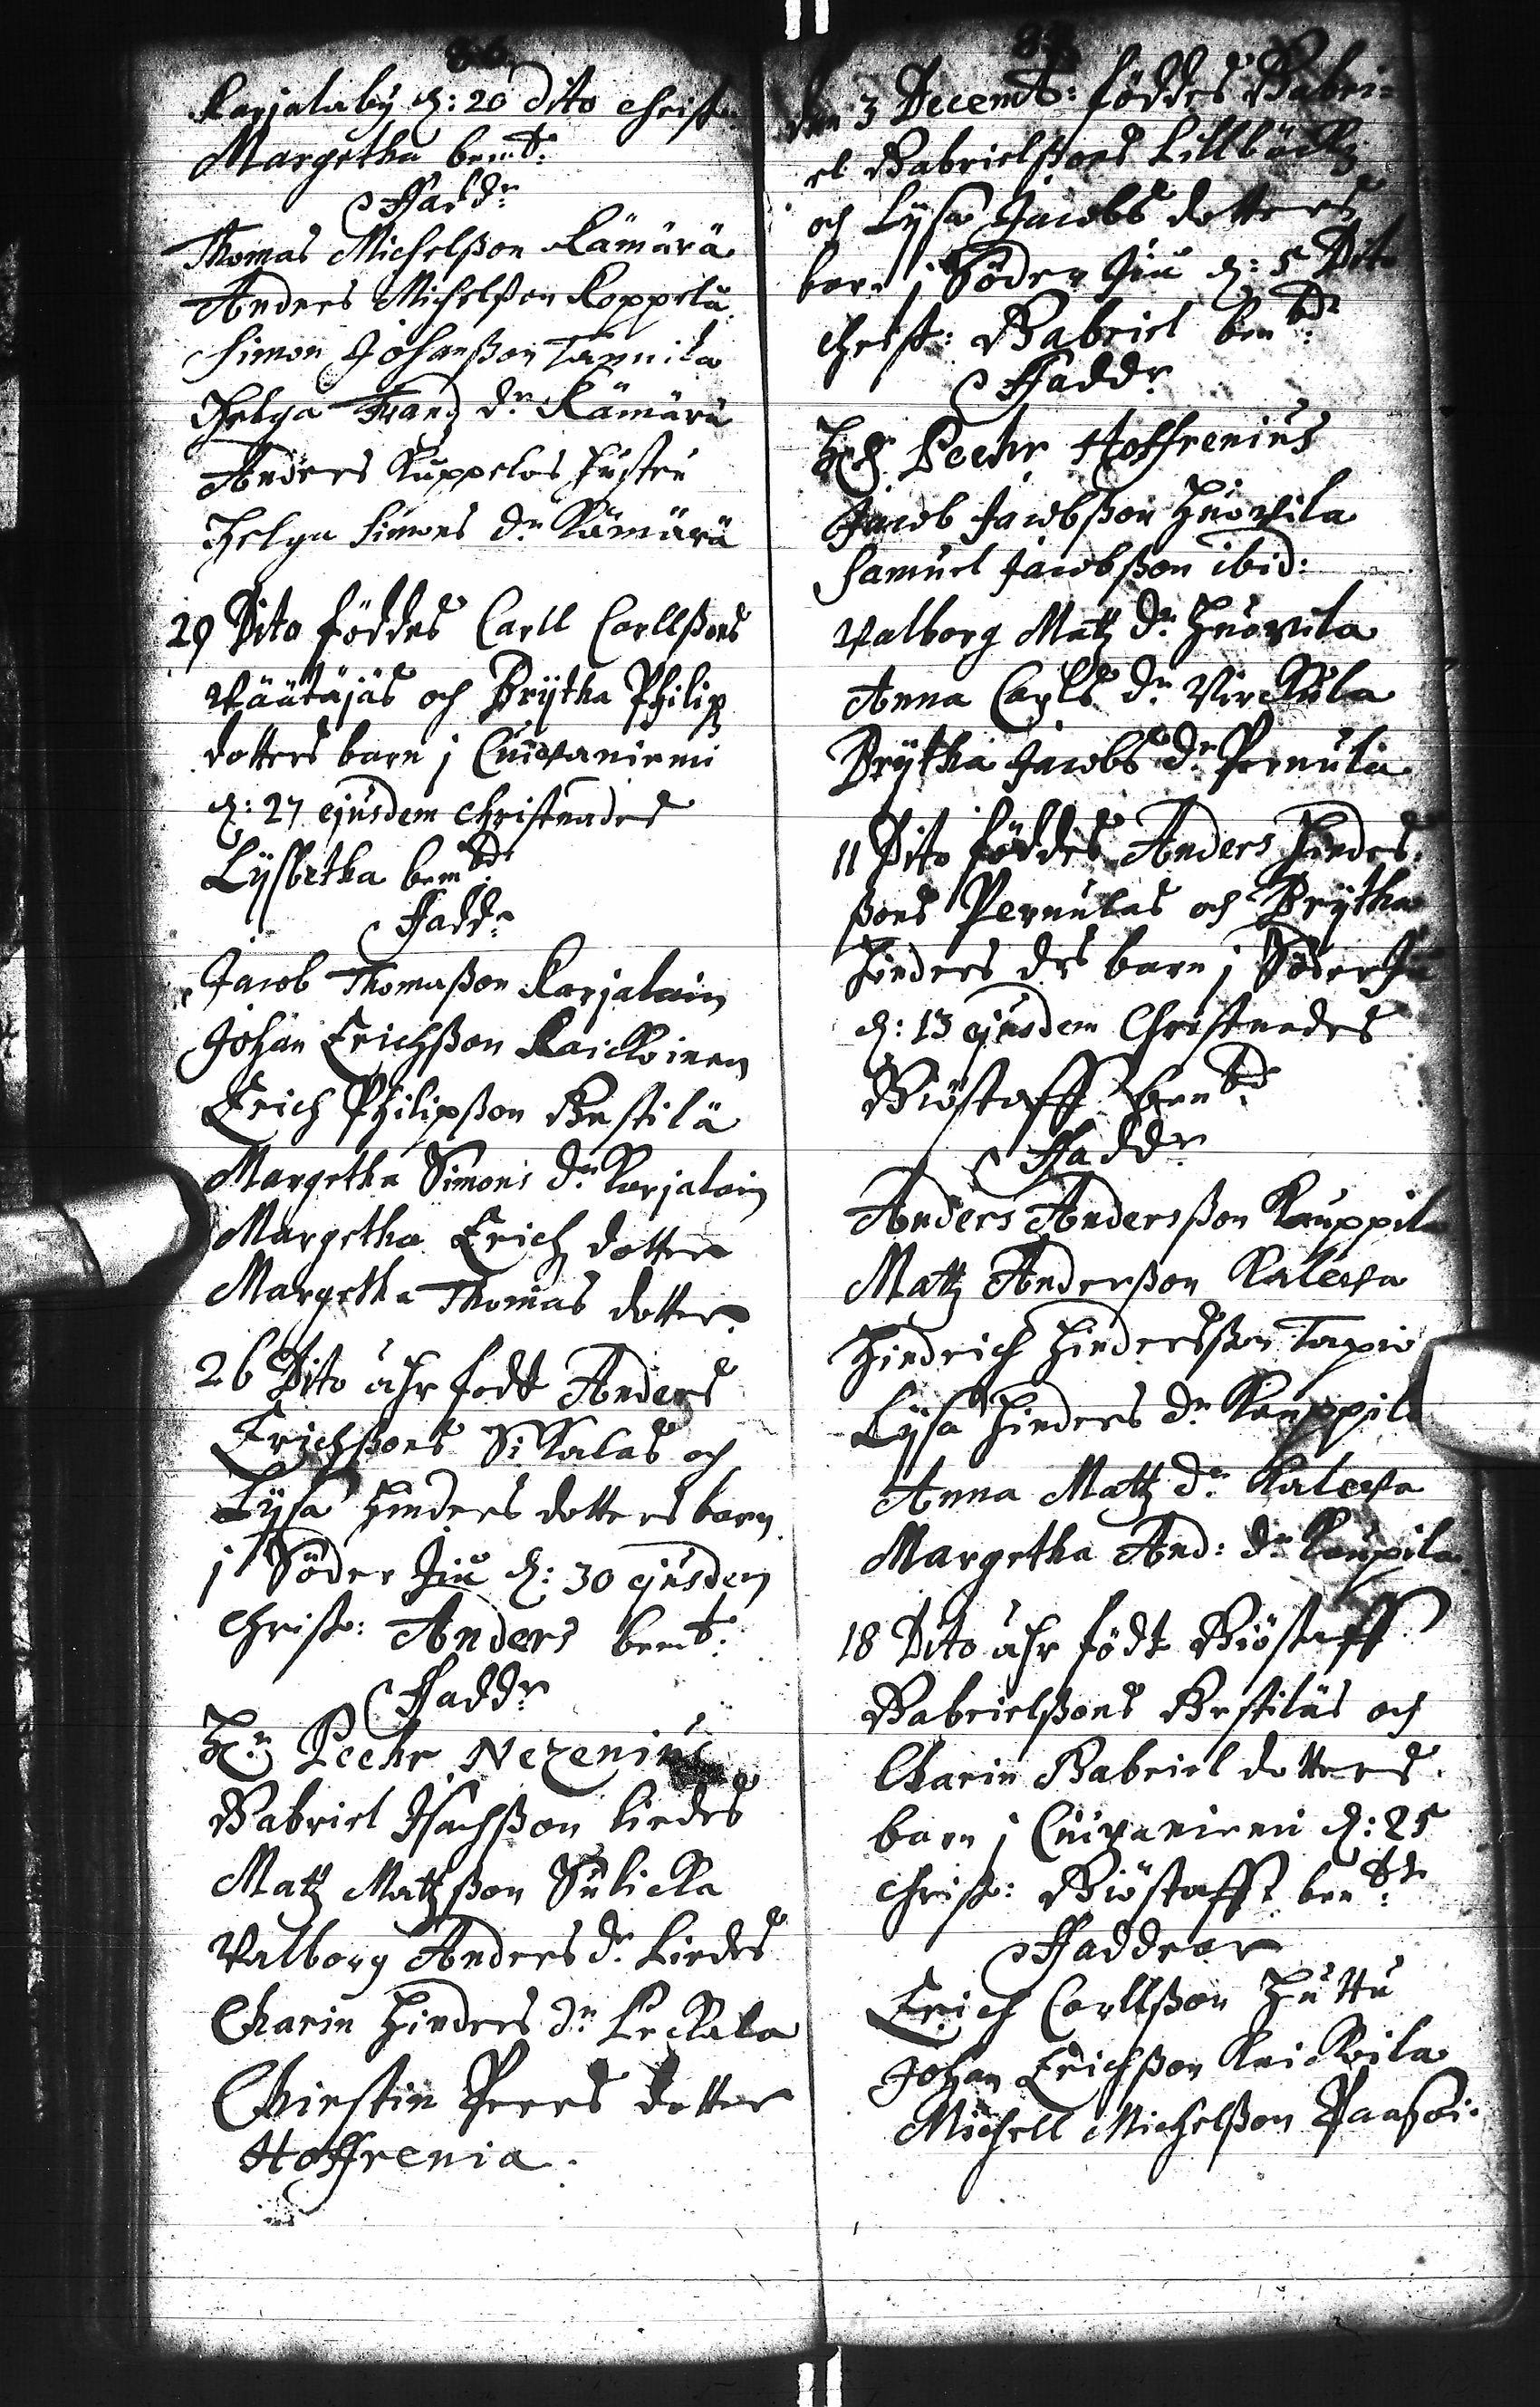 86.
Karjalaby d: 20 dito christ:
Margetha bemt:
Fadd:r
Thomas Michelßon Kämärä
Anders Michelßon Koppelu
Simon Johanßon Tannila
Helga Franz d:r Kämärä
Anders Kuppelos hustru
Helga Simons d:r Kämärä
29 Dito föddes Carll Carllßons
Wäätäjäs och Brijtha Philip
dotters barn j Cuivaniemi
d: 27 ejusdem christnades
Lijsbetha bembd:
Fadd:r
Jacob Thomaßon Karjalain
Johan Erichßon Kaickoinen
Erich Philipßon Bestilä
Margetha Simons d:r Karjalain
Margetha Erich dotter
Margetha Thomas dotter
26 Dito ähr födt Anders
Erichßons Sikalas och
Lijsa Hinders dotters barn
j Söder Jiu d: 30 ejusdem
christ: Anders bemt:
Faddr
H:r Peehr Nezenius
Gabriel Isachßon Liedes
Mattz Mattzßon Sulicka
Walborg Anders d:r Liedes
Charin Hinders d:r Leckala
Chirstin Peers dotter
Hoffrenia.
87.
den 3 Decemb: föddes Gabri-
el Gabrielßons Lillbäckz
och Lysa Jacobs dotters
barn j Söder Jiu d: 5 Dito
christ: Gabriel benbd:
Faddr
H:r Peehr Hoffrenius
Jacob Jacobßon Huovila
Samuel Jacobßon ibid:
Walborg Mattz d:r Huovila
Anna Carls d:r Virckula
Brijtha Jacobs d:r Pernula
11 Dito föddes Anders Hinders
ßons Pernulas och Brijtha
Hinders drs barn j Söder Jiu
d: 13 ejusdem Christnades
Giöstaff benbd:
Faddr
Anders Andersßon Kauppila
Mattz Anderßon Kaleva
Hindrich Hindersßon Tapio
Lysa Hinders d:r Kauppila
Anna Mattz d:r Kaleva
Margetha And: d:r Kaupila
18 Dito ähr födt Giöstaff
Gabrielßons Bestiläs och
Charin Gabriel dotters
barn j Cuivaniemi d: 25
christ: Giöstafft benbde:
Faddrar
Erich Carllßon Huttu
Johan Erichßon Keickoila
Michell Michelßon Paasoi.